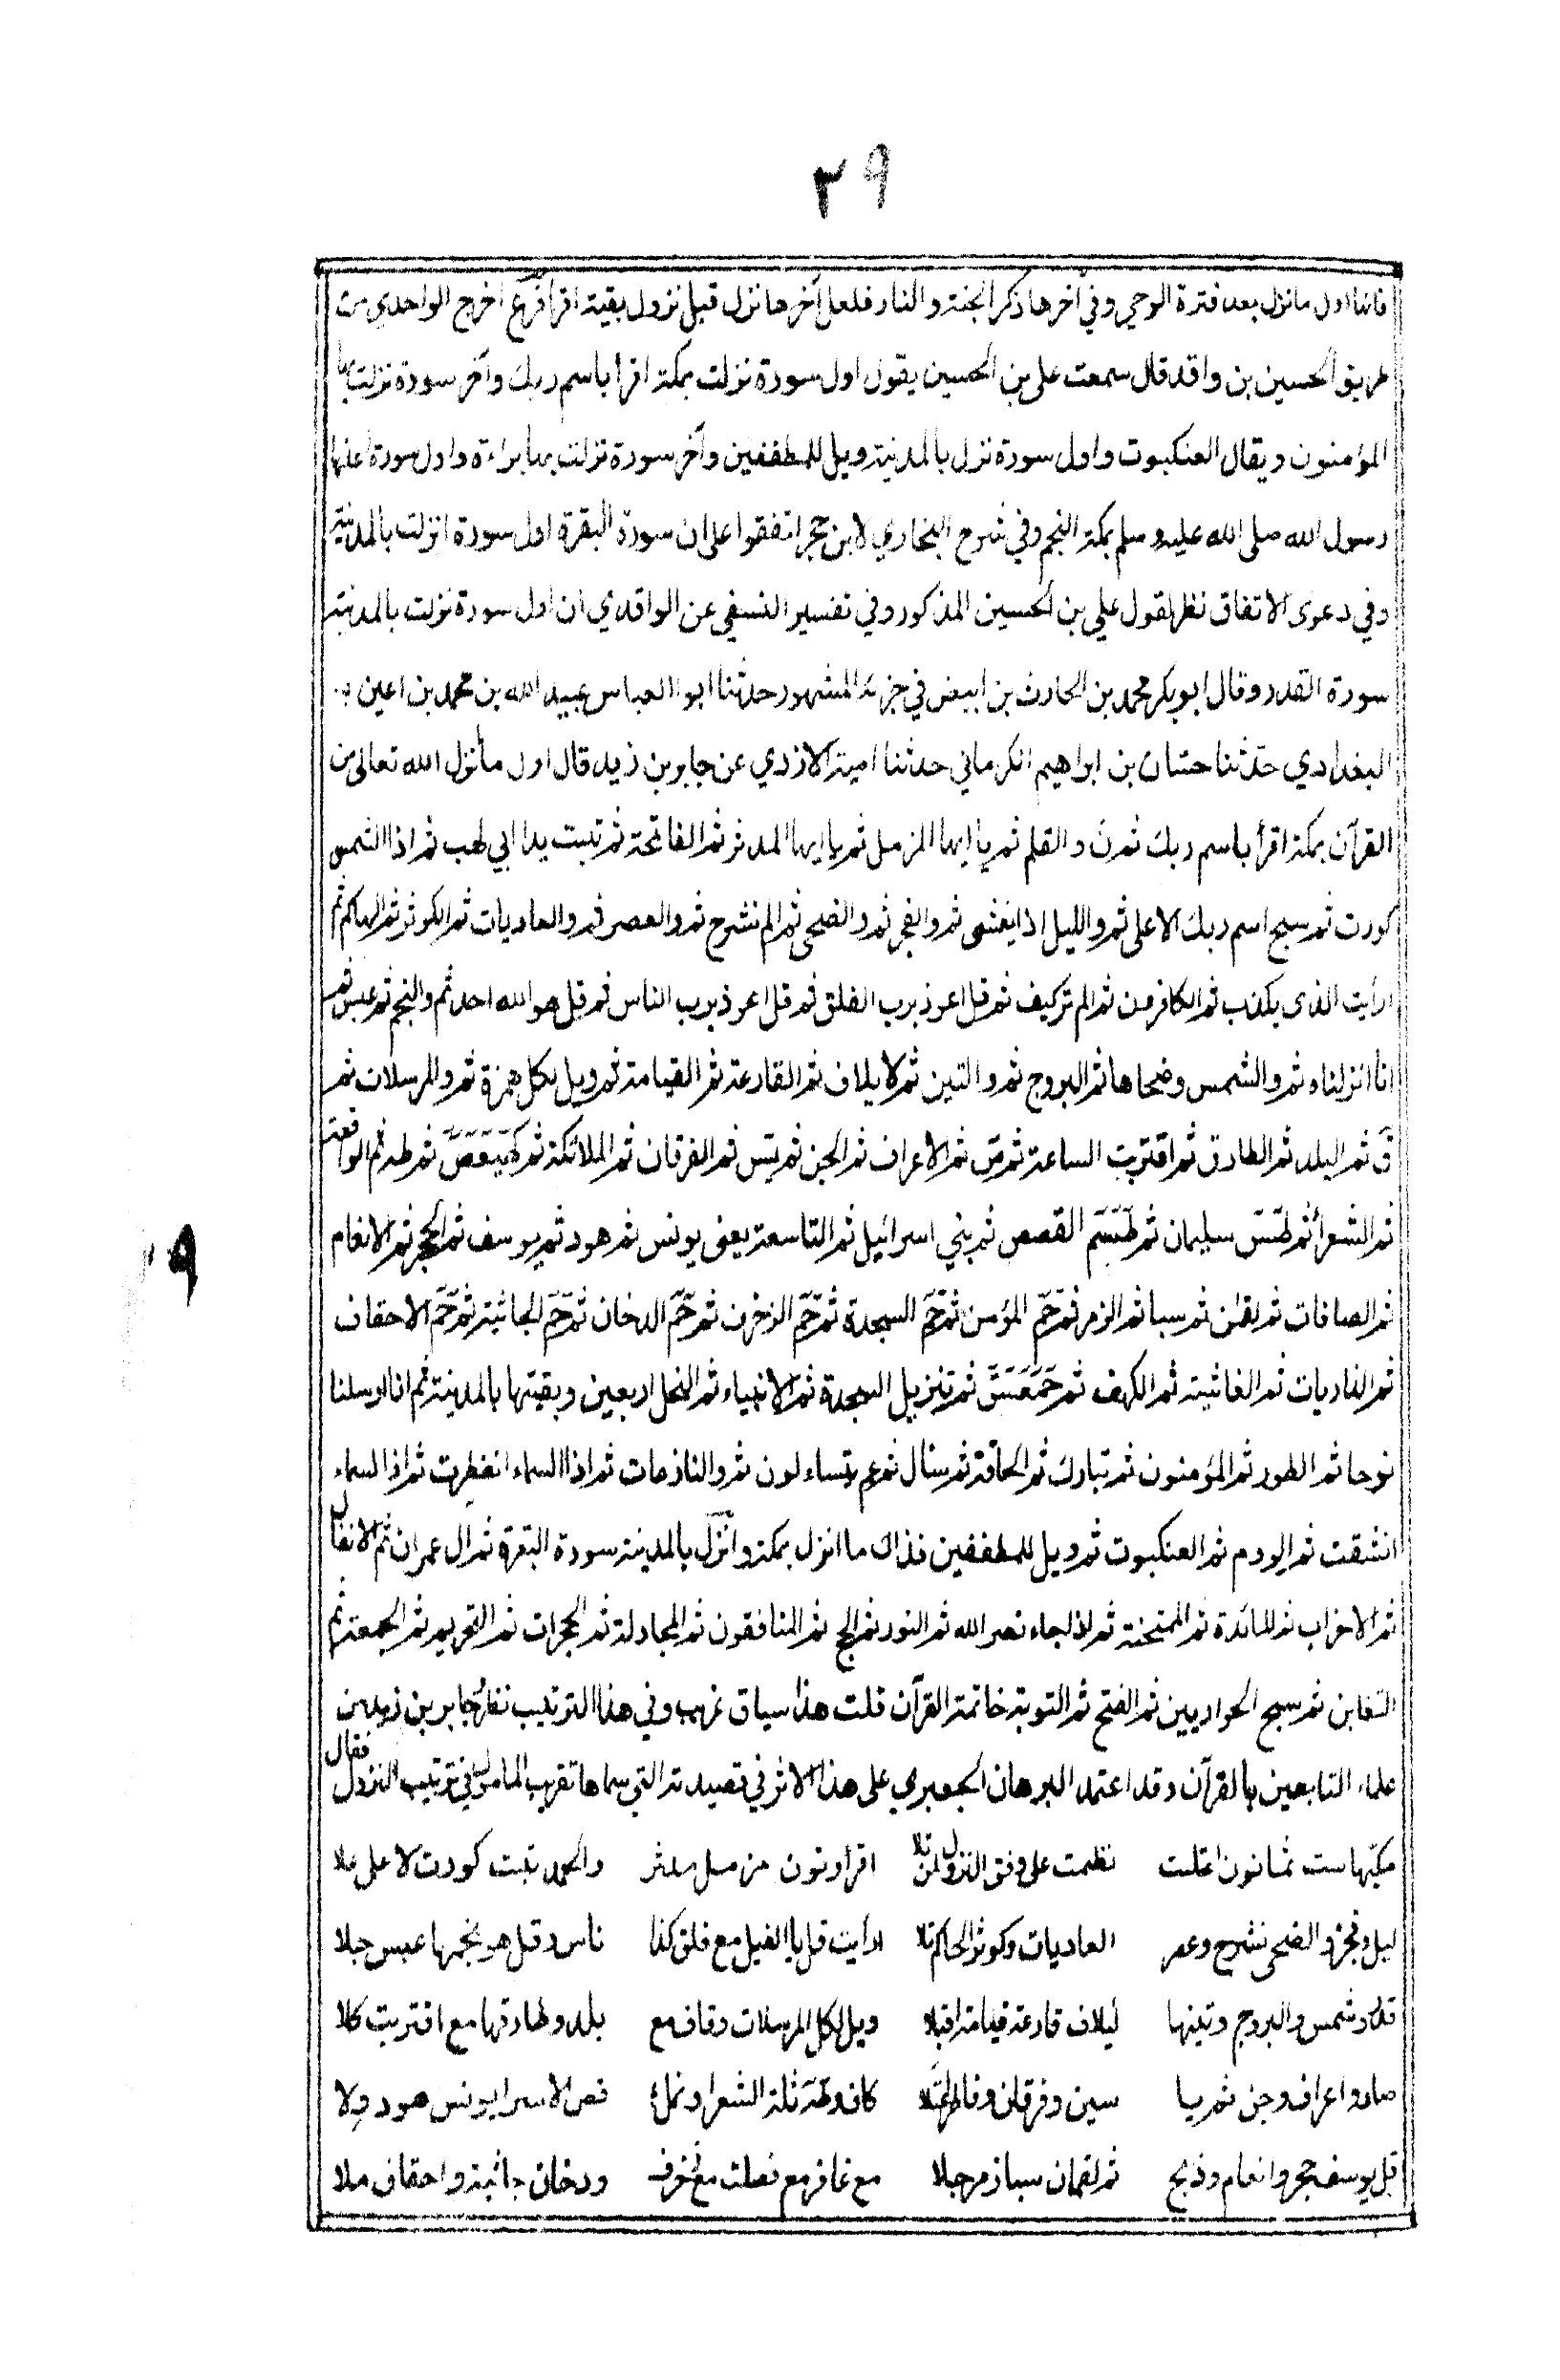 ٢٩
فانها اول ما نزل بعد فترة الوحي وفي آخرها ذكر الجنة والنار فلعل آخرها نزل قبل نزول بقية اقرأ فرع اخرج الواحدي من
طريق الحسين بن واقد قال سمعت علي بن الحسين يقول اول سورة نزلت بمكة اقرأ باسم ربك وآخر سورة نزلت بها
المؤمنون ويقال العنكبوت واول سورة نزل بالمدينة ويل للمطففين وآخر سورة نزلت بها براءة واول سورة اعلنها
رسول الله صلى الله عليه وسلم بمكة النجم وفي شرح البخاري لابن حجر اتفقوا على ان سورة البقرة اول سورة انزلت بالمدينة
وفي دعوى الاتفاق نظر لقول علي بن الحسين المذكور وفي تفسير النسفي عن الواقدي ان اول سورة نزلت بالمدينة
سورة القدر وقال ابو بكر محمد بن الحارث بن ابيض في جزئه المشهور حدثنا ابو العباس عبيد الله بن محمد بن اعين
البغدادي حدثنا حسّان بن ابراهيم الكرماني حدثنا امية الازدي عن جابر بن زيد قال اول ما نزل الله تعالى من
القرآن بمكة اقرأ باسم ربك ثم نٓ والقلم ثم يا ايها المزمل ثم يا ايها المدثر ثم الفاتحة ثم تبت يدا ابي لهب ثم اذا الشمس
كورت ثم سبح اسم ربك الاعلى ثم والليل اذا يغشى ثم والفجر ثم والضحى ثم الم نشرح ثم والعصر ثم والعاديات ثم الكوثر ثم الهاكم ثم
ارأيت الذي يكذب ثم الكافرون ثم الم تر كيف ثم قل اعوذ برب الفلق ثم قل اعوذ برب الناس ثم قل هو الله احد ثم والنجم ثم عبس ثم
انا انزلناه ثم والشمس وضحاها ثم البروج ثم والتين ثم لايلاف ثم القارعة ثم القيامة ثم ويل لكل همزة ثم والمرسلات ثم
قٓ ثم البلد ثم الطارق ثم اقتربت الساعة ثم صٓ ثم الاعراف ثم الجن ثم يٓسٓ ثم الفرقان ثم الملائكة ثم كٓهٓيٓعٓصٓ ثم طه ثم الواقعة
ثم الشعرأ ثم طٓسٓ سليمان ثم طٓسٓمٓ القصص ثم بني اسرائيل ثم التاسعة يعني يونس ثم هود ثم يوسف ثم الحجر ثم الانعام
ثم الصافات ثم لقمن ثم سبا ثم الزمر ثم حٓمٓ المؤمن ثم حٓمٓ السجدة ثم حٓمٓ الزخرف ثم حٓمٓ الدخان ثم حٓمٓ الجاثية ثم حٓمٓ الاحقاف
ثم الذاريات ثم الغاشية ثم الكهف ثم حٓمٓعٓسٓقٓ ثم تنزيل السجدة ثم الانبياء ثم النحل اربعين وبقيتها بالمدينة ثم انا ارسلنا
نوحا ثم الطور ثم المؤمنون ثم تبارك ثم الحاقة ثم سئال ثم عم يتساءلون ثم والنازعات ثم اذا السماء انفطرت ثم اذا السماء
انشقت ثم الروم ثم العنكبوت ثم ويل للمطففين فذاك ما انزل بمكة وانزل بالمدينة سورة البقرة ثم ال عمران ثم الانفال
ثم الاحزاب ثم المائدة ثم الممتحنة ثم اذا جاء نصر الله ثم النور ثم الحج ثم المنافقون ثم المجادلة ثم الحجرات ثم التحريم ثم الجمعة ثم
التغابن ثم سبح الحواريين ثم الفتح ثم التوبة خاتمة القرآن قلت هذا سياق غريب وفي هذا الترتيب نظر وجابر بن زيد من
علماء التابعين بالقرآن وقد اعتمد البرهان الجعبري على هذا الاثر في قصيدته التي سماها تقريب المامول في ترتيب النزول فقال
مكيّها ست ثمانون اعتلت نظمت على وفق النزول لمن تلا اقرأ ونون مزمل مدثر والحمد تبت كورت لا على علا
ليل وفجر والضحى نشرح وعصر العاديات وكوثر الهاكم تلا ارأيت قل يا الفيل مع فلق كذا ناس وقل هو نجمها عبس جلا
قدر وشمس والبروج وتينها ليلاف قارعة قيامة اقبلا ويل لكل المرسلات وقاف مع بلد وطارقها مع اقتربت كلا
صاد واعراف وجن ثم يا سين وفرقان وفاطر اعتلا كاف وطه ثلة الشعرا ونمل قص الاسرا يونس هود ولا
قل يوسف حجر وانعام وذبح ثم لقمان سبا زمر جلا مع غافر مع فصلت مع زخرف ودخان جاثية واحقاف ملا
٩